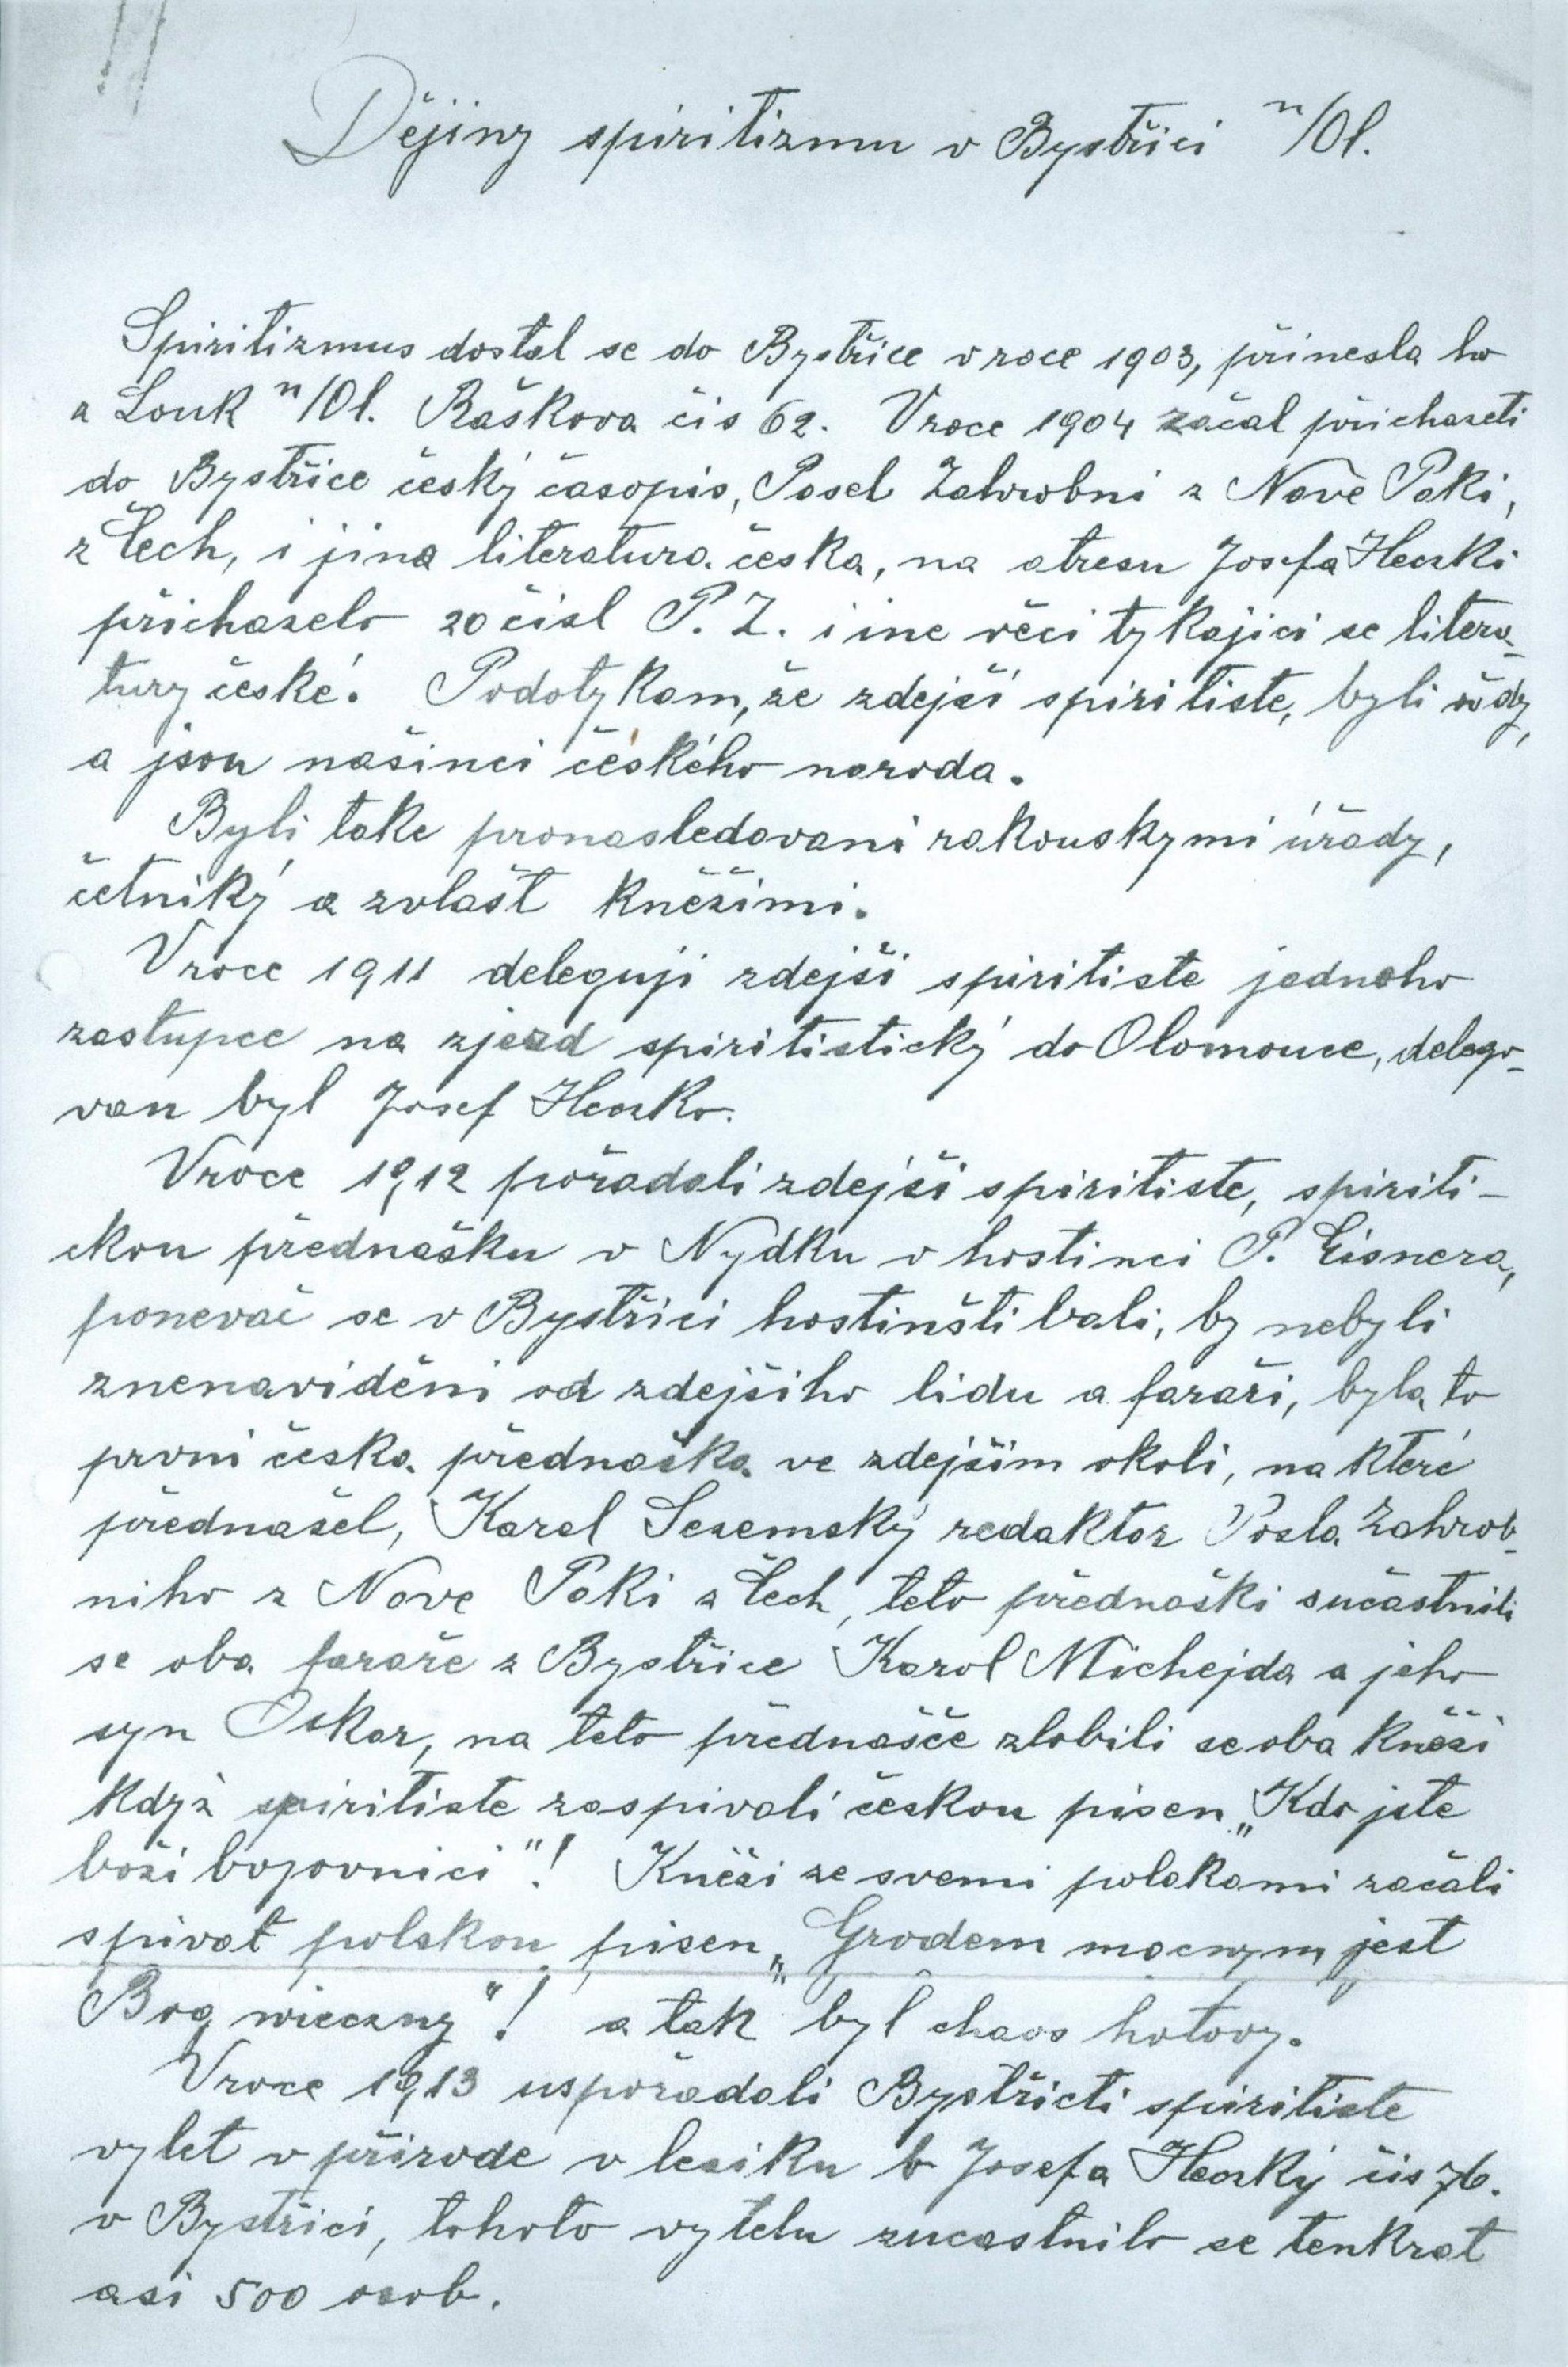 Dějiny spiritizmu v Bystřici n/Ol.
Spiritizmus dostal se do Bystřice v roce 1903, přinesla ho
z Louk n/Ol. Raškova čis 62. V roce 1904 začal přichazeti
do Bystřice český časopis, Posel Zahrobni z Nove Paki,
z Čech, i jina literatura česka, na atresu Josefa Heczki
přichazelo 20 čisl P. Z. i ine věci tykajici se litera-
tury české. Podotykam, že zdejší spiritiste, byli vždy,
a jsou našinci českého naroda.
Byli take pronasledovani rakouskymi úřady,
četniký a zvlašť kněžimi.
V roce 1911 deleguji zdejši spiritiste jednoho
zastupce na zjezd spiritistický do Olomouce, delego-
van byl Josef Heczko.
V roce 1912 pořadali zdejši spiritiste, spiriti-
ckou přednašku v Nydku v hostinci P. Eisnera,
ponevač se v Bystřici hostinšti bali, by nebyli
znenaviděni od zdejšiho lidu a faraři, byla to
prvni česka přednaška ve zdejšim okoli, na které
přednašel, Karel Sezemský redaktor Posla Zahrob-
niho z Nove Paki z Čech, teto přednaški sučastnili
se oba faraře z Bystřice Karol Michejda a jeho
syn Oskar, na teto přednašce zlobili se oba kněži
když spiritiste zaspivali českou pisen „Kdo jste
boži bojovnici"! Kněži ze svemi polakami začali
spivat polskou pisen „Grodem mocnym jest
Bog wieczny"! a tak byl chaos hotovy.
V roce 1913 uspořadali Bystřicti spiritiste
vylet v přirode v lesiku b Josefa Heczký čis 76.
v Bystřici, tohoto vytelu zucastnilo se tenkrat
asi 500 osob.